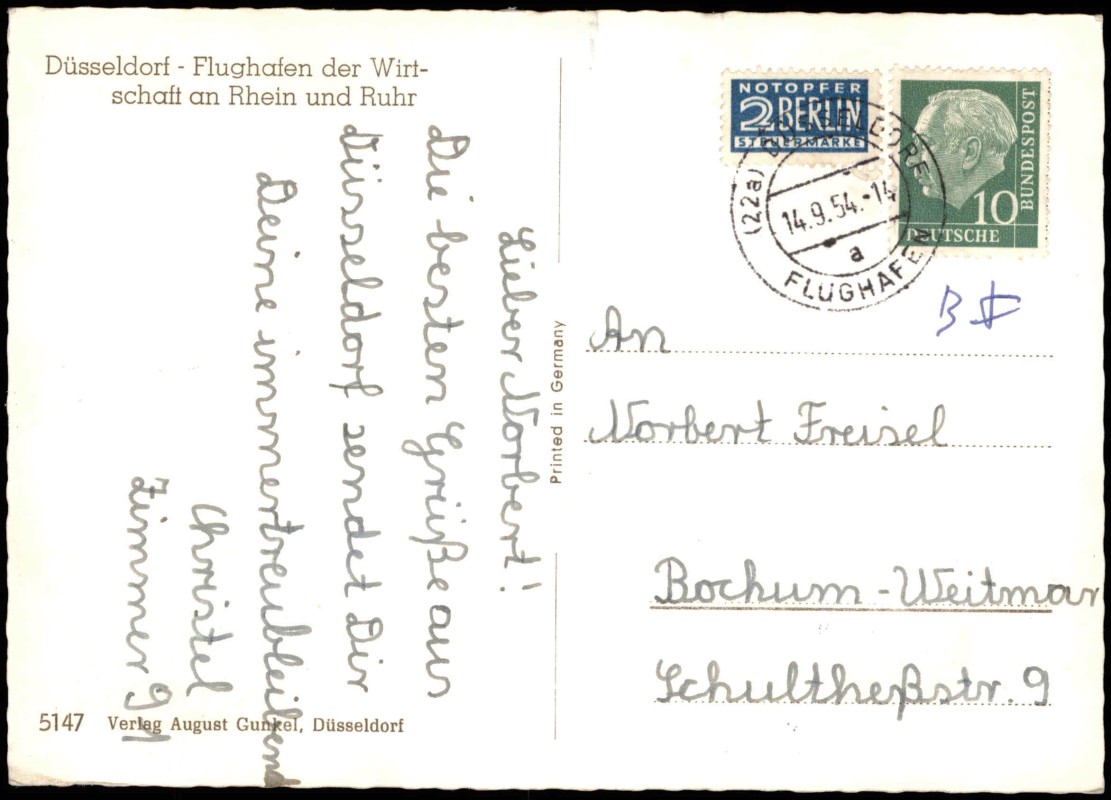 Düsseldorf - Flughafen der Wirt-
schaft an Rhein und Ruhr
Lieber Norbert!
Die besten Grüße aus
Düsseldorf sendet Dir
Deine immertreubleibend
Christel
Zimmer 91
5147 Verlag August Gunkel, Düsseldorf
Printed in Germany
NOTOPFER
2 BERLIN
STEUERMARKE
DEUTSCHE
BUNDESPOST
10
(22a) DÜSSELDORF
14.9.54.-14
a
FLUGHAFEN
An
Norbert Freisel
Bochum-Weitmar
Schultheßstr. 9